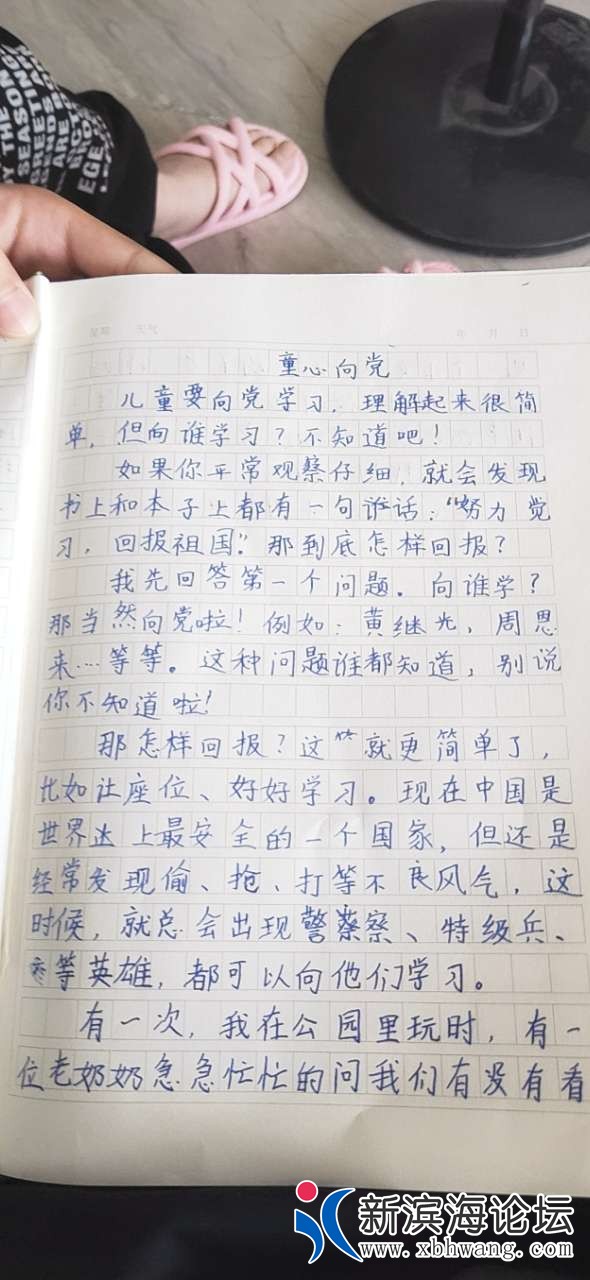 Y THE
SEASON
STREETAR
ENDS
ARE
EGE
年 月 日
天气
童心向党
儿童要向党学习，理解起来很简
单，但向谁学习？不知道吧！
如果你平常观察仔细，就会发现
书上和本子上都有一句话：“努力
习，回报祖国”。那到底怎样回报？
我先回答第一个问题．向谁学？
那当然向党啦！例如：黄继光，周恩
来…等等。这种问题谁都知道，别说
你不知道啦！
那怎样回报？这就更简单了，
比如让座位、好好学习。现在中国是
世界上最安全的一个国家，但还是
经常发现偷、抢、打等不良风气，这
时候，就总会出现警察、特级兵、
等英雄，都可以向他们学习。
有一次，我在公园里玩时，有一
位老奶奶急急忙忙的问我们有没有看
新滨海论坛
www.xbhwang.com